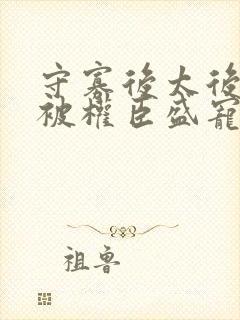 守寡後太後
被權臣盛寵
祖魯